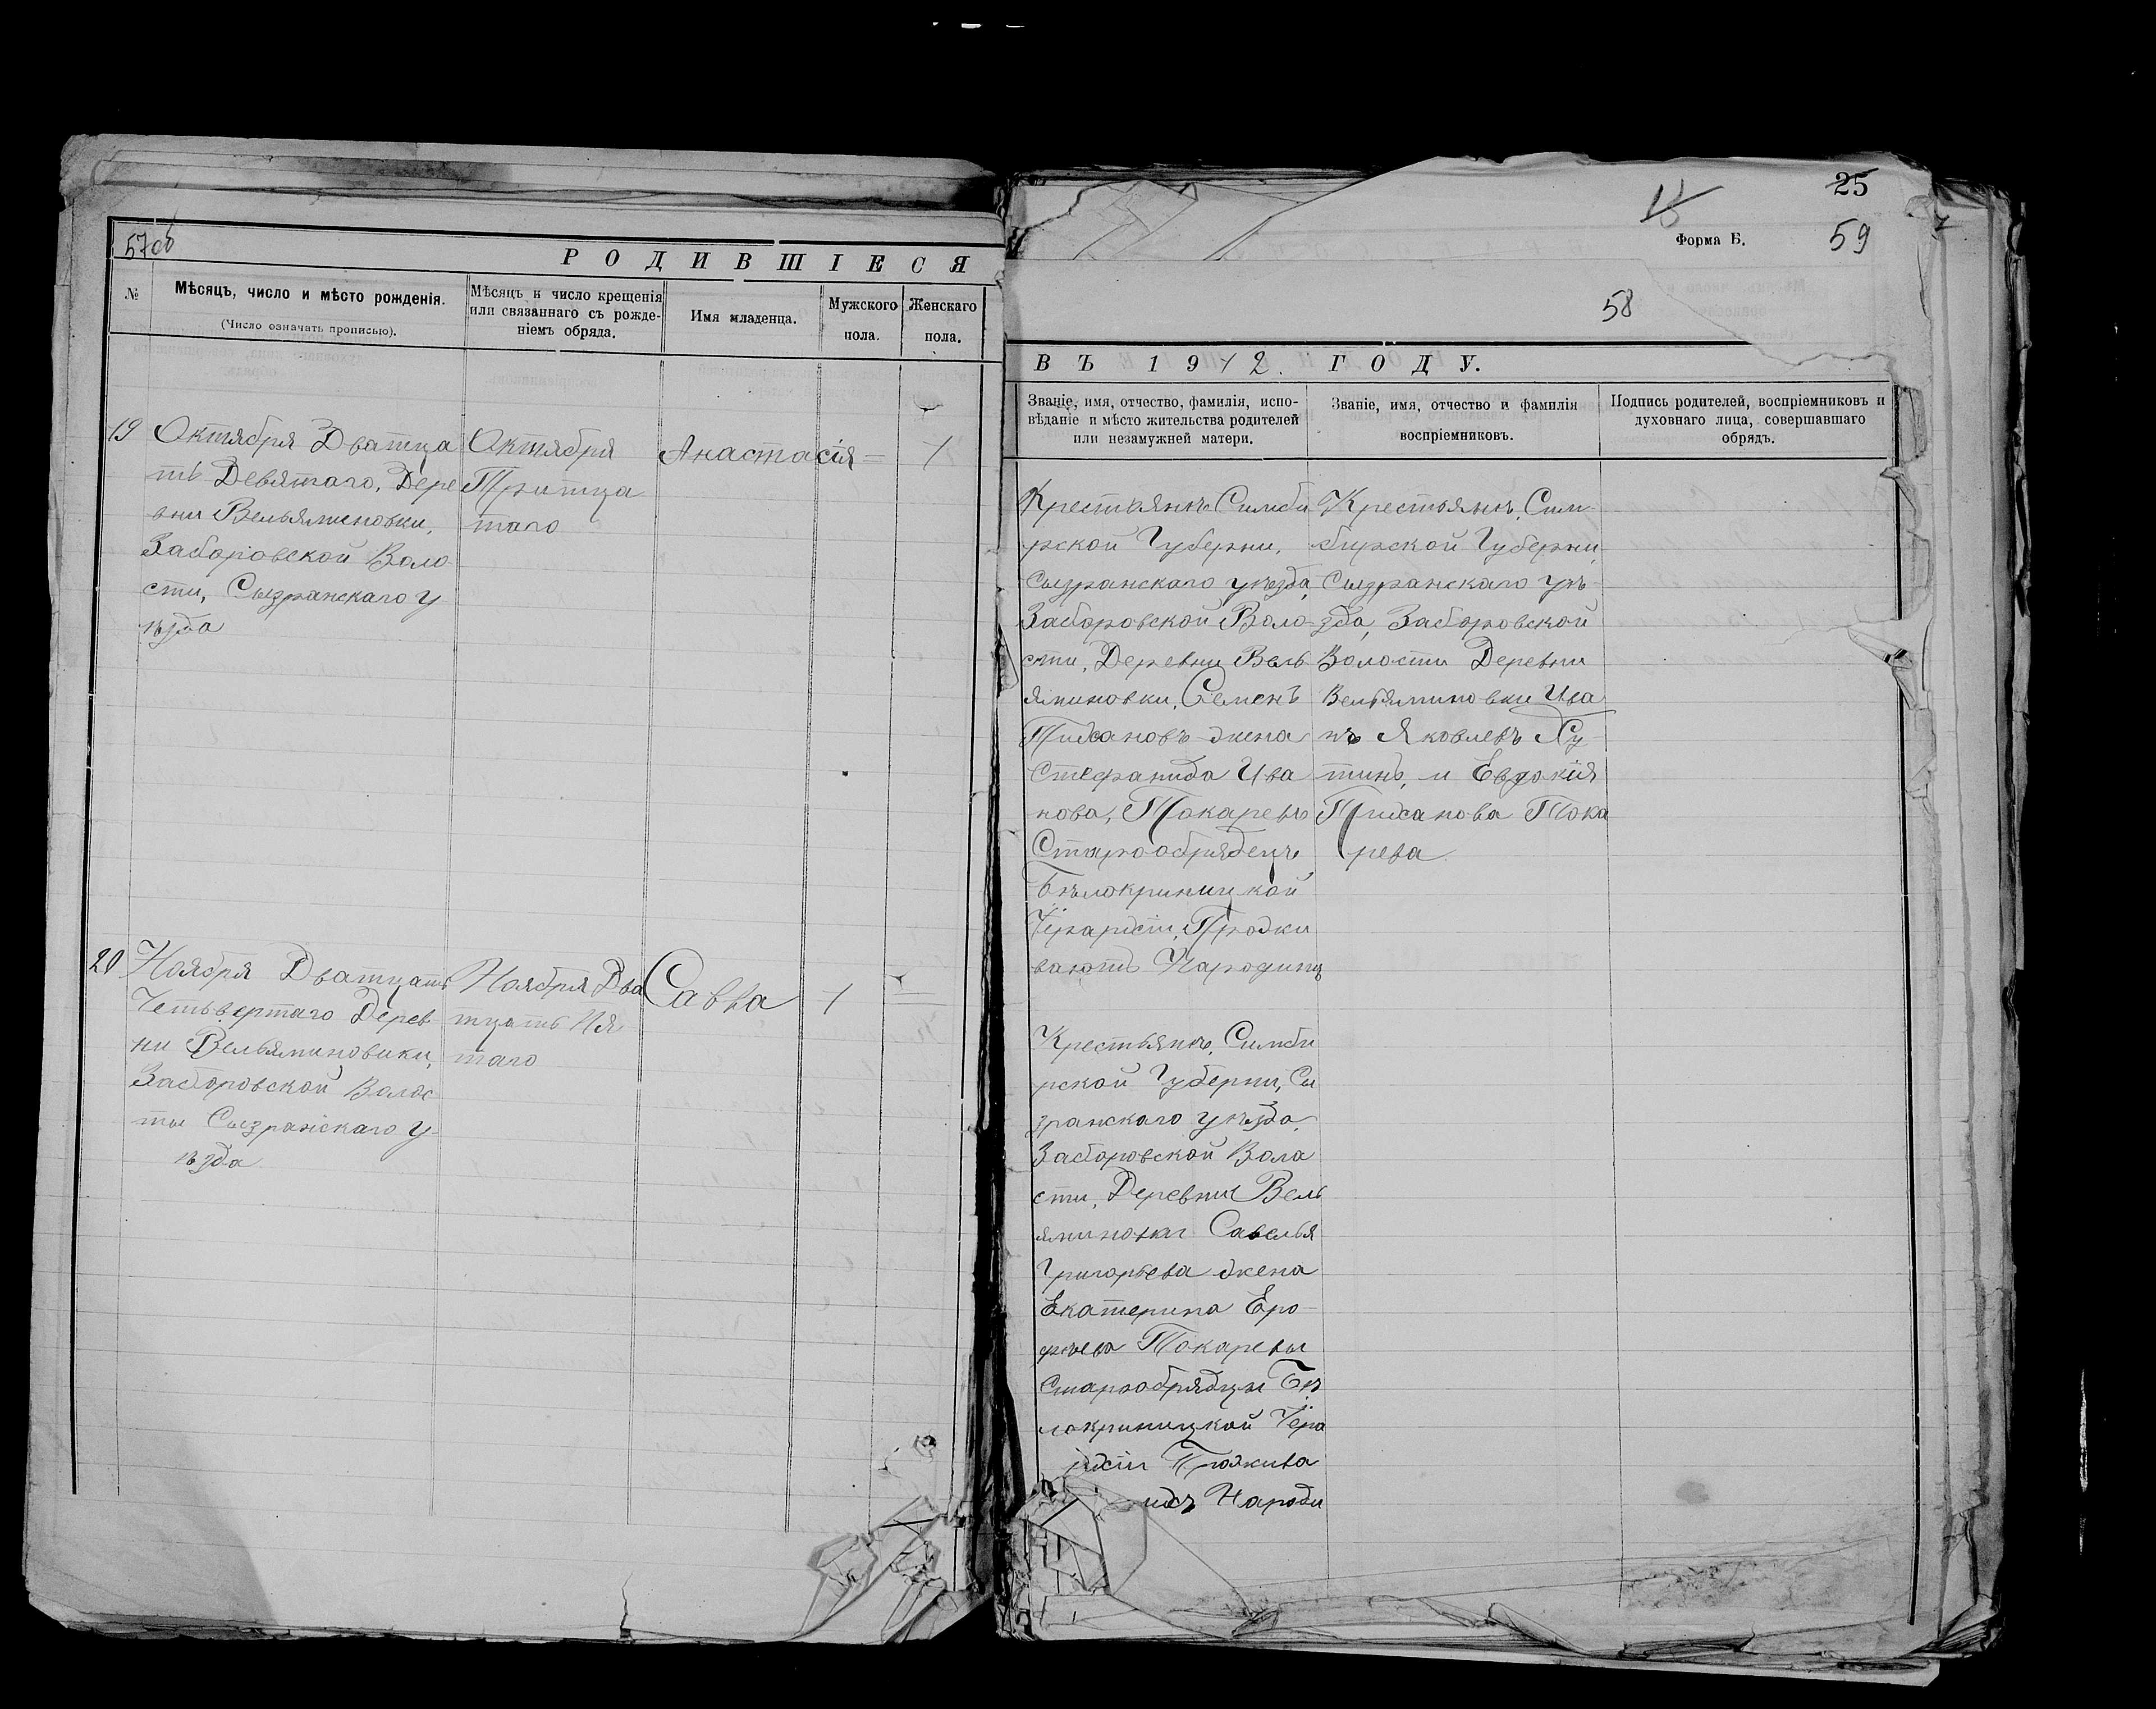 57об
РОДИВШІЕСЯ
№
Мѣсяцъ, число и мѣсто рожденія.
(Число означать прописью).
Мѣсяцъ и число крещенія
или связаннаго съ рожде-
ніемъ обряда.
Имя младенца.
Мужского
пола.
Женскаго
пола.
19
Октября Дватца
ть Девятаго, Дере
вни Вельяминовки,
Заборовской Воло
сти, Сызранскаго у
ѣзда
Октября
Тритца
таго
Анастасія
=
1
20
Ноября Дватцать
Четьвертаго Дерев
ни Вельяминовики,
Заборовской Волос
ты Сызранскаго у-
ѣзда
Ноября Два
тцать Пя
таго
Савва
1
=
25
59
Форма Б.
58
ВЪ 1912. ГОДУ.
Званіе, имя, отчество, фамилія, испо-
вѣданіе и мѣсто жительства родителей
или незамужней матери.
Званіе, имя, отчество и фамилія
воспріемниковъ.
Подпись родителей, воспріемниковъ и
духовнаго лица, совершавшаго
обрядъ.
Крестьянъ Симби
рской Губерни,
Сызранскаго уѣзда,
Заборовской Воло
сти, Деревни Вель
яминовки, Семенъ
жена
Стефанида Ива
нова, Токаревъ
Старообрядецъ
Бѣлокриницкой
Іерархіи, Прожи
ваютъ
Крестьянъ, Сим-
бирской Губерни,
Сызранскаго уѣ-
зда, Заборовской
Волости Деревни
Вельяминовки Ива
нъ Яковлевъ Ху
тинъ, и Евдокия
Тока
рева
Крестьянъ, Симби
рской Губерни, Сы
зранскаго уѣзда,
Заборовской Вола
сти, Деревни Вель
яминовки Савелья
Григорьева жена
Екатерина Еро
фѣева Токаревы
Старообрядцы Бѣ
локриницкой Іера
рхіи Прожива
Народи